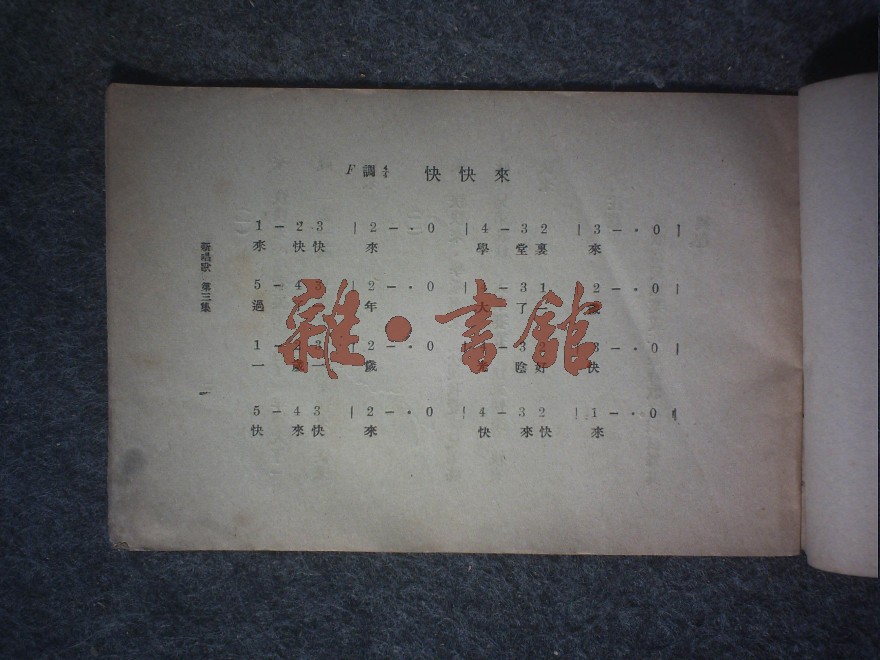 F 調 4/4 快快來
1 - 2 3 | 2 - · 0 | 4 - 3 2 | 3 - · 0 |
來 快 快 來 學 堂 裏 來
5 - 4 3 | 2 - · 0 | - 3 1 | 2 - · 0 |
過 年 大 了 歲
1 - 2 3 | 2 - · 0 | 4 - 3 | 3 - · 0 |
一 歲 一 歲 光 陰 好 快
5 - 4 3 | 2 - · 0 | 4 - 3 2 | 1 - · 0 ‖
快 來 快 來 快 來 快 來
新唱歌 第三集
一
雜·書館